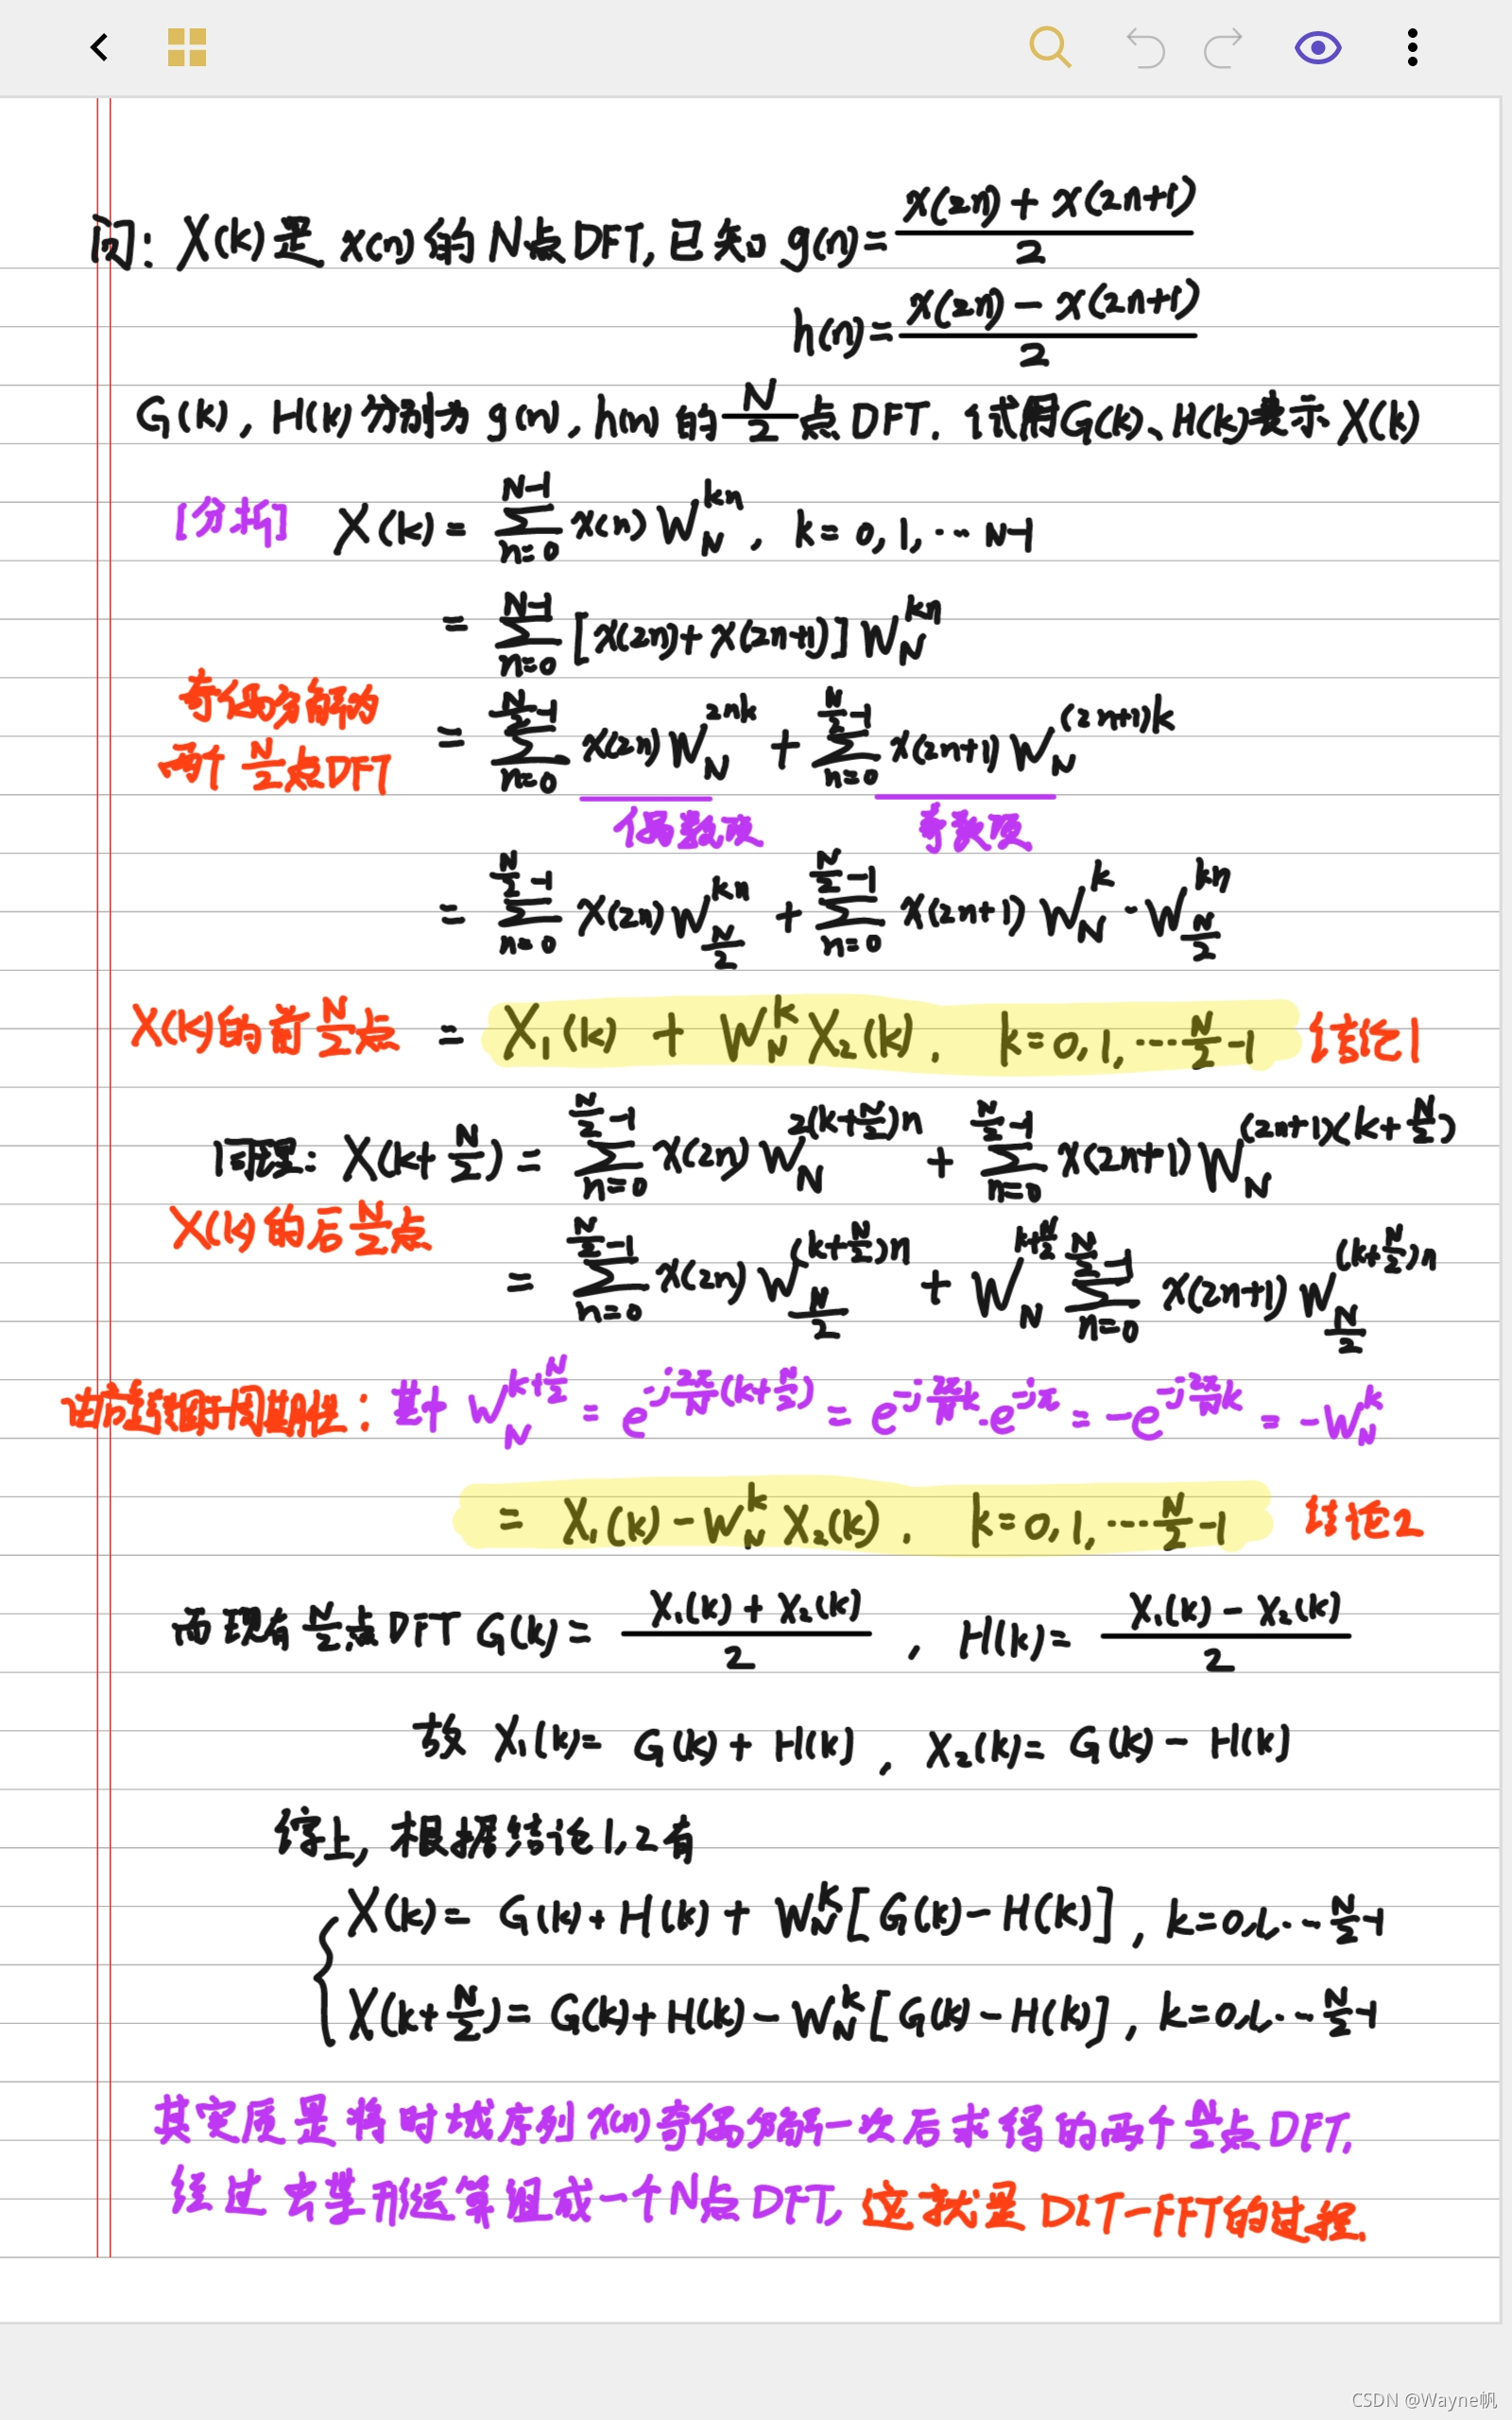 问: X(k)是 x(n)的N点DFT,已知 g(n)= (x(2n)+x(2n+1))/2
h(n)= (x(2n)-x(2n+1))/2
G(k), H(k)分别为 g(n), h(n)的 N/2 点 DFT. 试用G(k)、H(k)表示 X(k)
[分析] X(k) = ∑_{n=0}^{N-1} x(n) W_N^{kn}, k=0,1,…N-1
= ∑_{n=0}^{N-1} [x(2n)+x(2n+1)] W_N^{kn}
奇偶分解为
两个 N/2 点DFT
= ∑_{n=0}^{N/2-1} x(2n) W_N^{2nk} + ∑_{n=0}^{N/2-1} x(2n+1) W_N^{(2n+1)k}
偶数项 奇数项
= ∑_{n=0}^{N/2-1} x(2n) W_{N/2}^{kn} + ∑_{n=0}^{N/2-1} x(2n+1) W_N^k · W_{N/2}^{kn}
X(k)的前 N/2 点 = X₁(k) + W_N^k X₂(k), k=0,1,……N/2-1 结论1
同理: X(k+N/2) = ∑_{n=0}^{N/2-1} x(2n) W_N^{2(k+N/2)n} + ∑_{n=0}^{N/2-1} x(2n+1) W_N^{(2n+1)(k+N/2)}
X(k)的后 N/2 点
= ∑_{n=0}^{N/2-1} x(2n) W_{N/2}^{(k+N/2)n} + W_N^{k+N/2} ∑_{n=0}^{N/2-1} x(2n+1) W_{N/2}^{(k+N/2)n}
由旋转因子周期性: 其中 W_N^{k+N/2} = e^{-j(2π/N)(k+N/2)} = e^{-j(2π/N)k}·e^{-jπ} = -e^{-j(2π/N)k} = -W_N^k
= X₁(k) - W_N^k X₂(k), k=0,1,……N/2-1 结论2
而现有 N/2 点DFT G(k)= (X₁(k)+X₂(k))/2 , H(k)= (X₁(k)-X₂(k))/2
故 X₁(k)= G(k)+H(k) , X₂(k)= G(k)-H(k)
综上, 根据结论1,2有
{ X(k)= G(k)+H(k)+ W_N^k [G(k)-H(k)], k=0,1,…N/2-1
X(k+N/2)= G(k)+H(k)- W_N^k [G(k)-H(k)], k=0,1,…N/2-1
其实质是将时域序列x(n)奇偶分解一次后求得的两个 N/2 点DFT,
经过去蝶形运算组成一个N点DFT, 这就是DIT-FFT的过程.
CSDN @Wayne帆